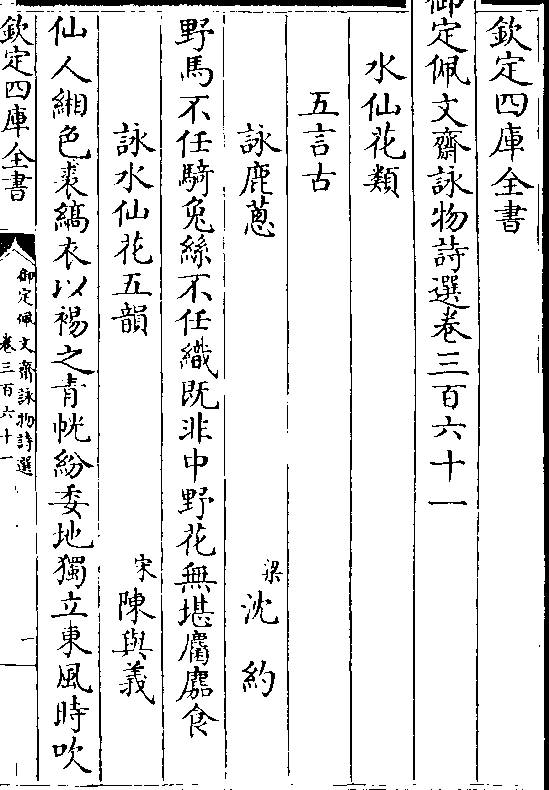 欽定四庫全書
御定佩文齋詠物詩選卷三百六十一
水仙花類
五言古
詠鹿蔥
梁 沈約
野馬不任騎兔絲不任織既非中野花無堪麕麚食
詠水仙花五韻
宋 陳與義
仙人緗色裘縞衣以裼之青帨紛委地獨立東風時吹
欽定四庫全書
御定佩文齋詠物詩選
卷三百六十一
一